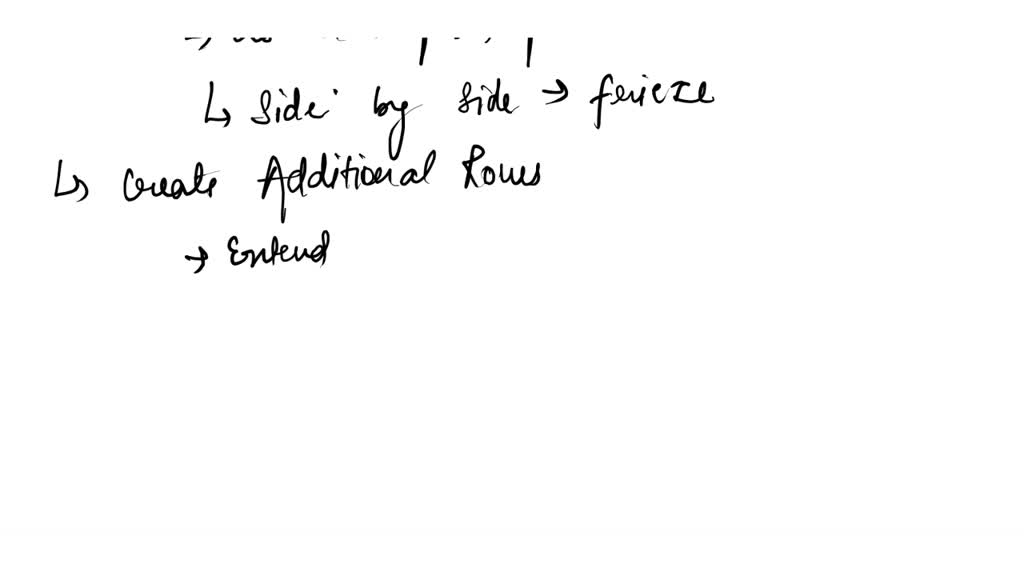 ↳ Side by side → frieze
↳ Create Additional Rows
→ Extend